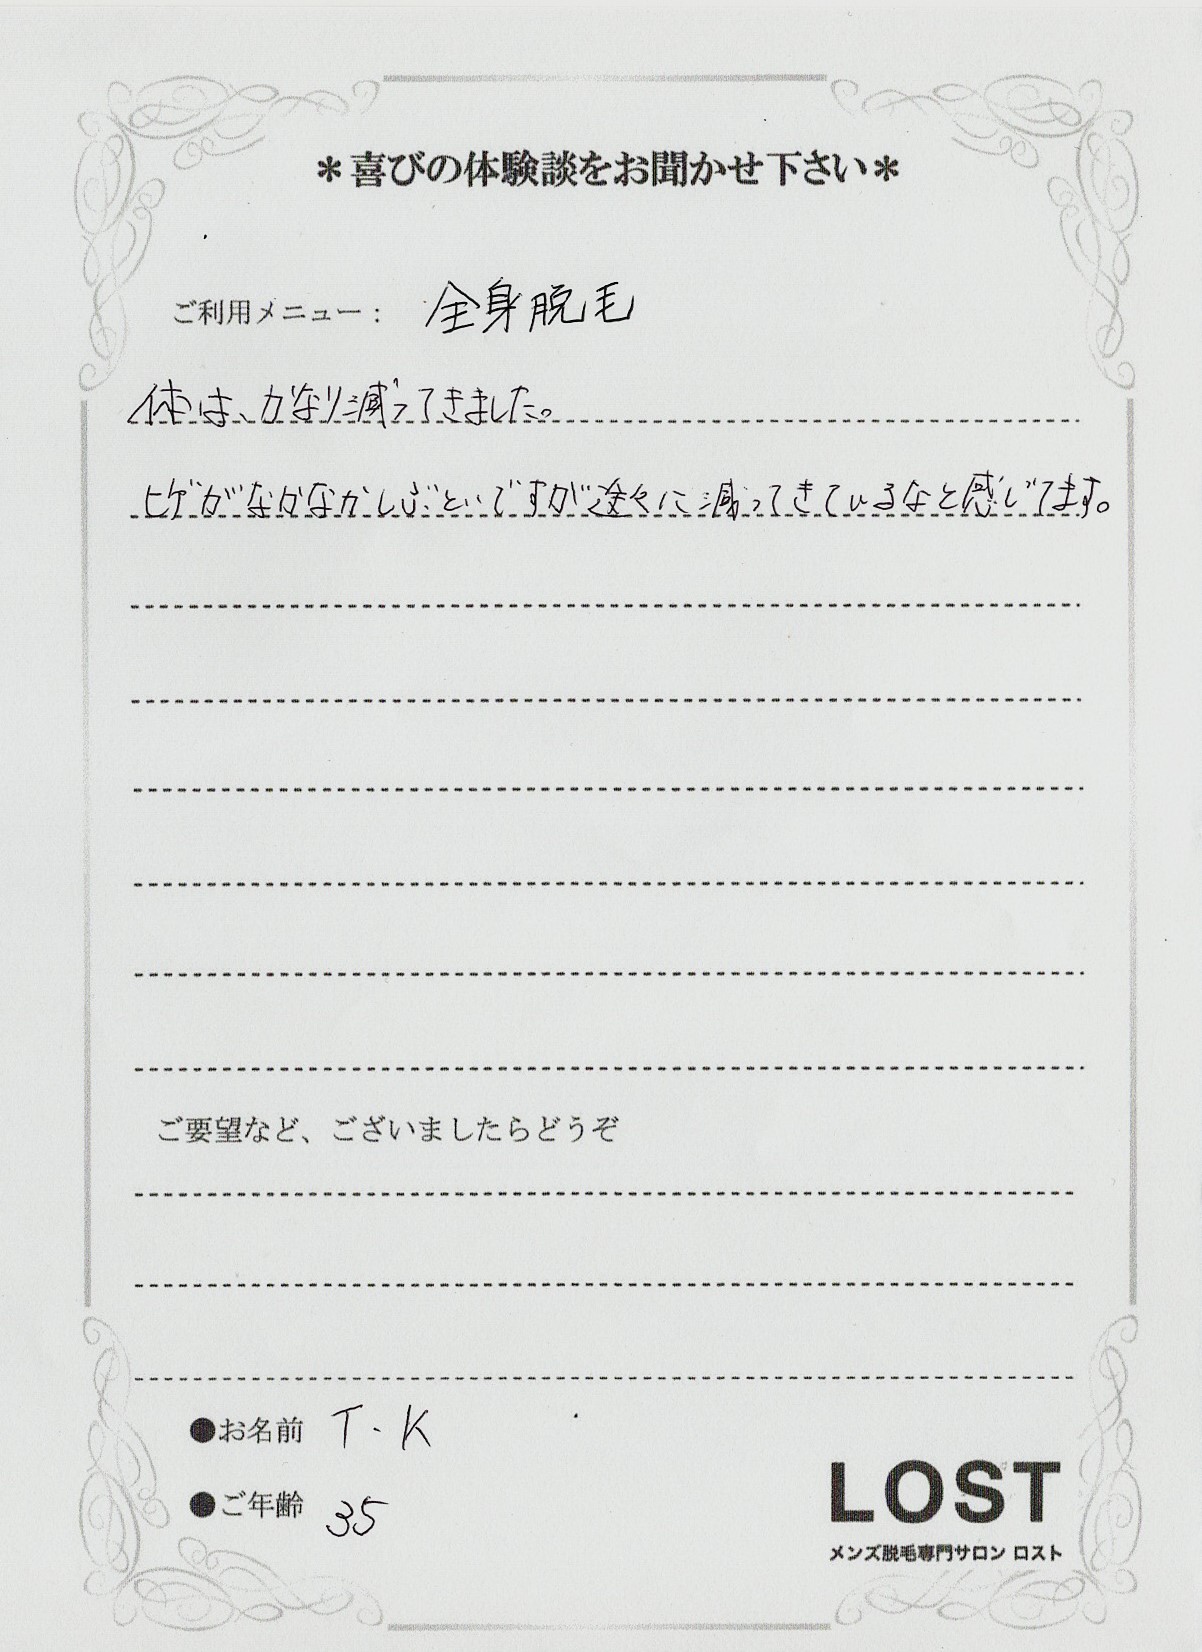 ＊喜びの体験談をお聞かせ下さい＊
ご利用メニュー： 全身脱毛
体は、かなり減ってきました。
ヒゲがなかなかしぶといですが途々に減ってきているなと感じてます。
ご要望など、ございましたらどうぞ
●お名前 T.K
●ご年齢 35
LOST
メンズ脱毛専門サロン ロスト